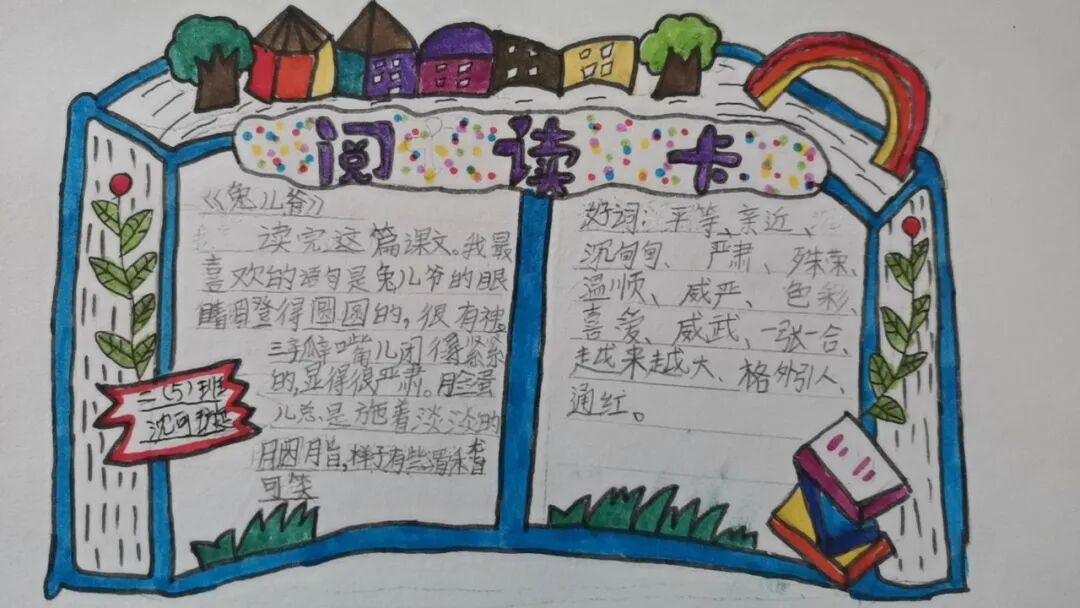 阅读卡
《兔儿爷》
读完这篇课文。我最
喜欢的语句是兔儿爷的眼
睛瞪得圆圆的，很有神。
三字瓣嘴儿闭得紧紧
的,显得很严肃。脸蛋
儿总是施着淡淡的
胭脂,样子有些滑稽
可笑
二(5)班
沈可
好词：平等、亲近、
沉甸甸、严肃、殊荣、
温顺、威严、色彩、
喜爱、威武、一张一合、
越来越大、格外引人、
通红。